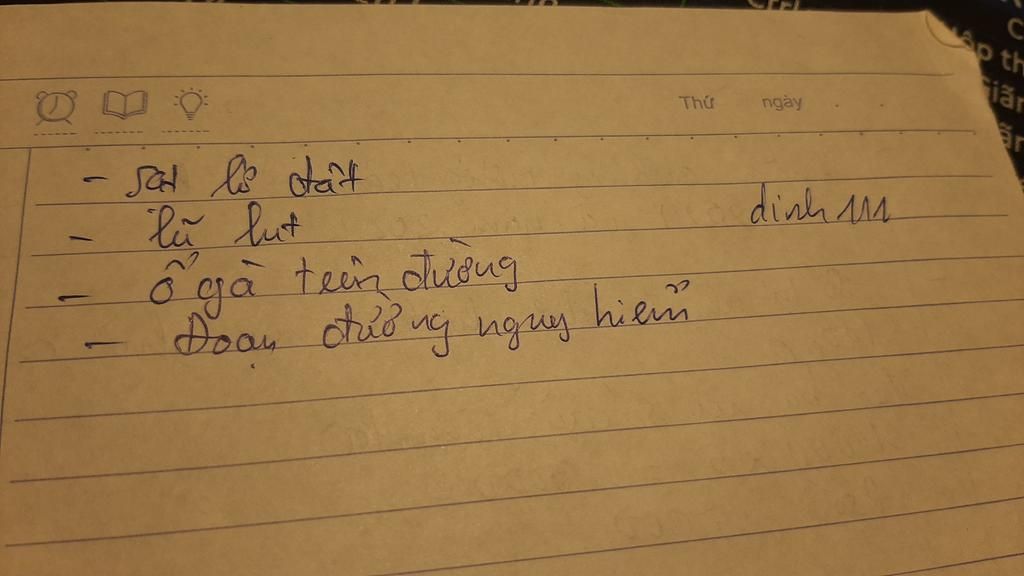 Thứ ngày
- sạt lở đất
dinh 111
- lũ lụt
- Ổ gà trên đường
- Đoạn đường nguy hiểm